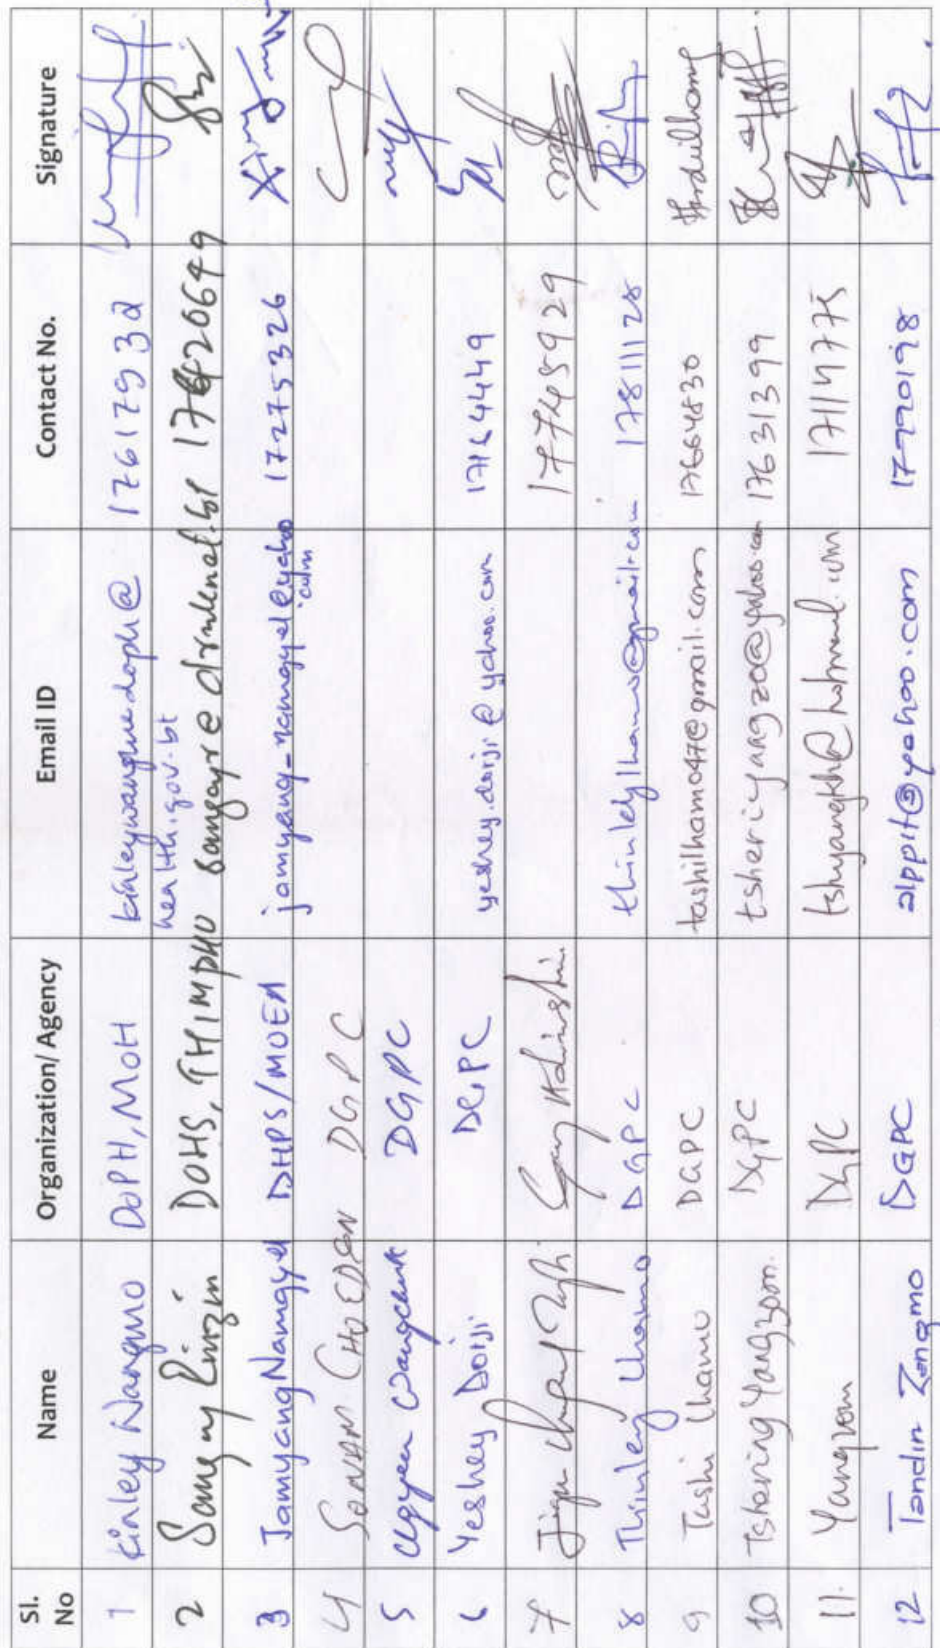 Sl. No Name Organization/ Agency Email ID Contact No. Signature
1 Kinley Wangmo DoPH, MoH kinleywangmo.doph@ 17617932
health.gov.bt
2 Sangay Rinzin DOHS, THIMPHU 17620649
3 Jamyang Namgyel DHPS/MOEA jamyang_namgyel@yahoo 17275326
.com
4 SONAM CHOEDEN DGPC
5 Ugyen Wangchuk DGPC
6 Yeshey Dorji DGPC yeshey.dorji@yahoo.com 17164449
7 Jigme 17745929
8 Thinley Lhamo DGPC thinleylhamo@gmail.com 17811128
9 Tashi Lhamo DGPC tashilhamo47@gmail.com 17664830
10 Tshering Yangzom. DGPC tsheriyangzo@yahoo.com 17631399
11. Yangzom DGPC tshyangkh@hotmail.com 17114775
12 Tandin Zangmo DGPC alppit@yahoo.com 17770198